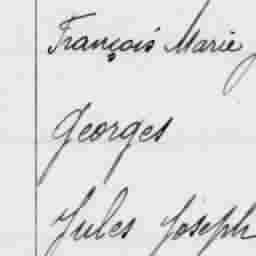 François Marie
Georges
Jules Joseph